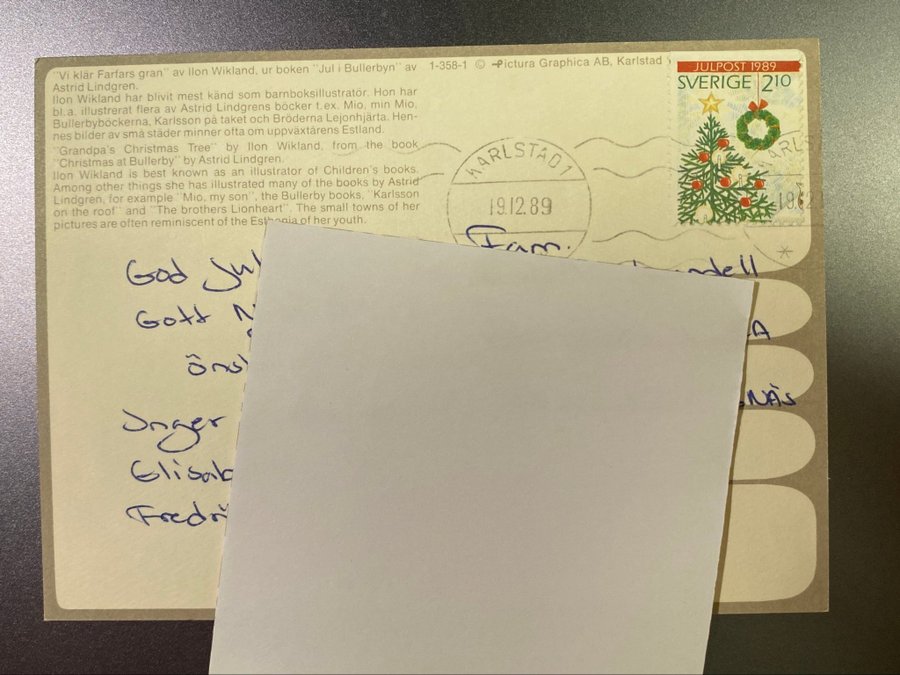 "Vi klär Farfars gran" av Ilon Wikland, ur boken "Jul i Bullerbyn" av
Astrid Lindgren.
Ilon Wikland har blivit mest känd som barnboksillustratör. Hon har
bl.a. illustrerat flera av Astrid Lindgrens böcker t.ex. Mio, min Mio,
Bullerbyböckerna, Karlsson på taket och Bröderna Lejonhjärta. Hen-
nes bilder av små städer minner ofta om uppväxtårens Estland.
"Grandpa's Christmas Tree" by Ilon Wikland, from the book
"Christmas at Bullerby" by Astrid Lindgren.
Ilon Wikland is best known as an illustrator of Children's books.
Among other things she has illustrated many of the books by Astrid
Lindgren, for example "Mio, my son", the Bullerby books, "Karlsson
on the roof" and "The brothers Lionheart". The small towns of her
pictures are often reminiscent of the Esthonia of her youth.
1-358-1 © Pictura Graphica AB, Karlstad
JULPOST 1989
SVERIGE 2.10
KARLSTAD 1
19.12.89
God Jul
Gott
Inger
Fam.